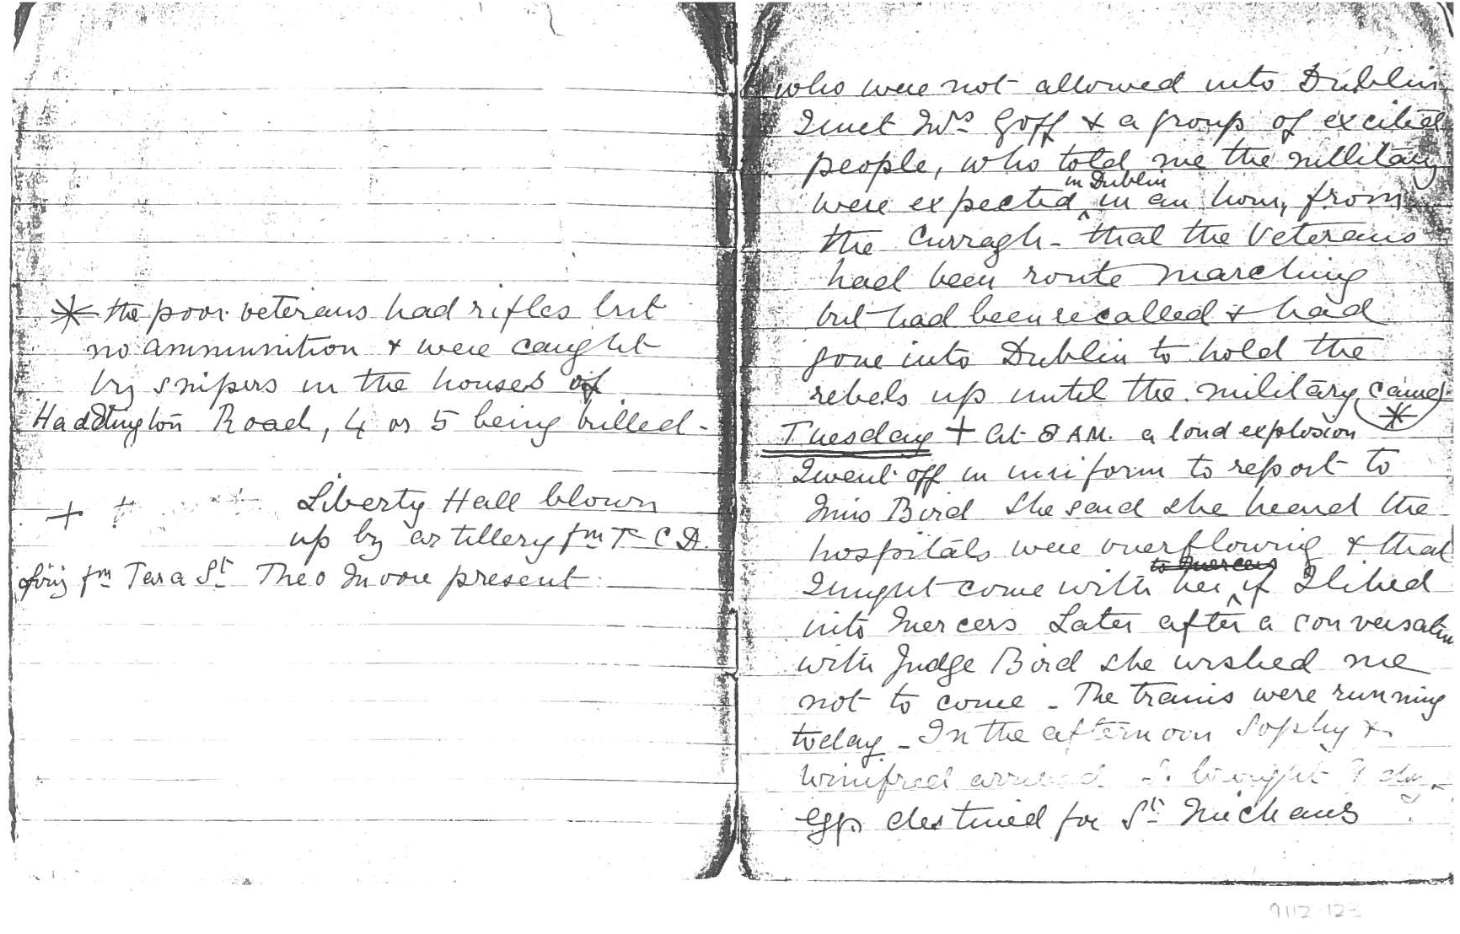 * the poor veterans had rifles but
no ammunition & were caught
by snipers in the houses of
Haddington Road, 4 or 5 being killed -
+ + Liberty Hall blown
up by artillery fm T C D.
fm Tara St Theo Moore present
who were not allowed into Dublin
I met Mrs Goff & a group of excited
people, who told me the military
were expected in Dublin in an hour, from
the Curragh - that the Veterans
had been route marching
but had been recalled & had
gone into Dublin to hold the
rebels up until the military came.
*
Tuesday + At 8 AM. a loud explosion
I went off in uniform to report to
Miss Bird She said she heard the
hospitals were overflowing & that
to Mercers
I might come with her if I liked
into Mercers Later after a conversation
with Judge Bird she wished me
not to come - The trams were running
today - In the afternoon Sophy &
Winifred arrived S. brought
eggs destined for St Michans
9112.123